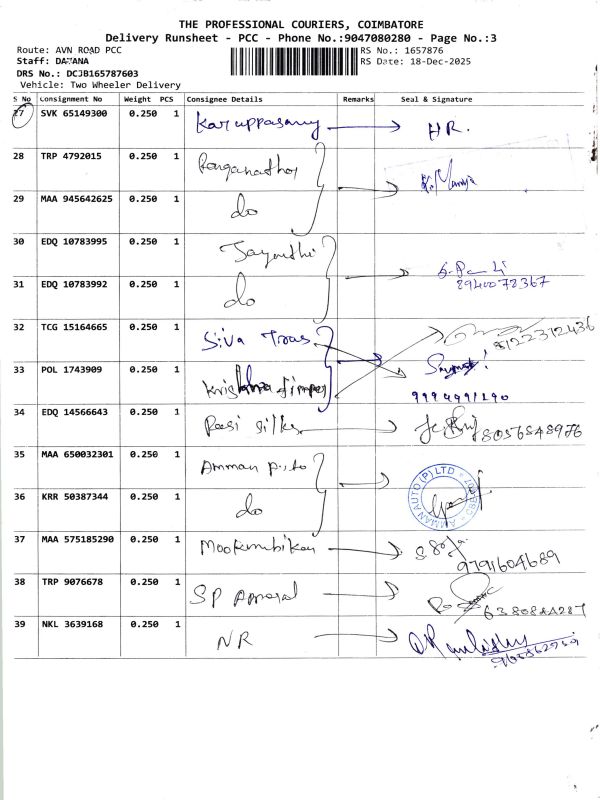 THE PROFESSIONAL COURIERS, COIMBATORE
Delivery Runsheet - PCC - Phone No.:9047080280 - Page No.:3
Route: AVN ROAD PCC RS No.: 1657876
Staff: DAYANA RS Date: 18-Dec-2025
DRS No.: DCJB165787603
Vehicle: Two Wheeler Delivery
S No Consignment No Weight PCS Consignee Details Remarks Seal & Signature
27 SVK 65149300 0.250 1 Karuppasamy HR.
28 TRP 4792015 0.250 1
29 MAA 945642625 0.250 1 do
30 EDQ 10783995 0.250 1 Jayanthi
31 EDQ 10783992 0.250 1 do 8940072367
32 TCG 15164665 0.250 1 Siva Tras 8122312436
33 POL 1743909 0.250 1 Krishna
34 EDQ 14566643 0.250 1 Rasi silks 8056848976
35 MAA 650032301 0.250 1 Amman
36 KRR 50387344 0.250 1 do AMMAN AUTO (P) LTD
37 MAA 575185290 0.250 1 Mookambikai 9791604689
38 TRP 9076678 0.250 1 SP
39 NKL 3639168 0.250 1 NR